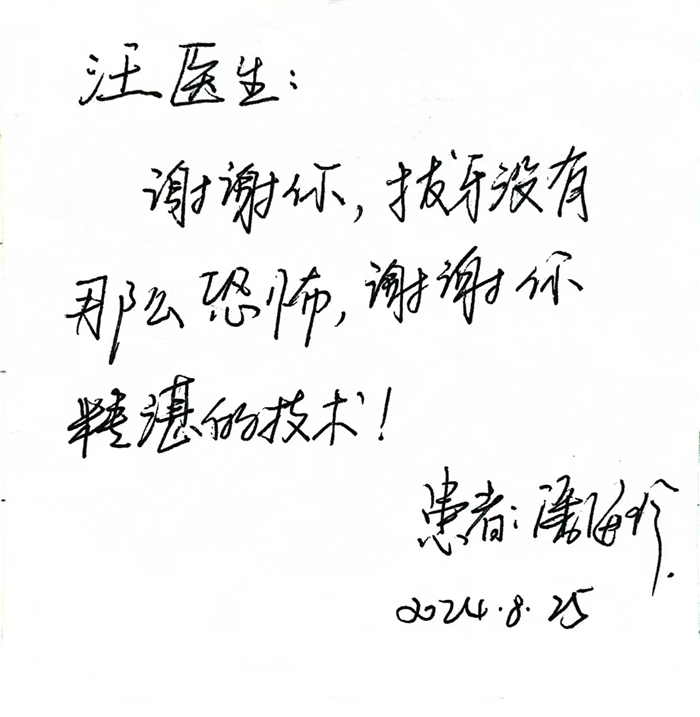 汪医生：
谢谢你，拔牙没有
那么恐怖，谢谢你
精湛的技术！
患者：潘海珍
2024.8.25